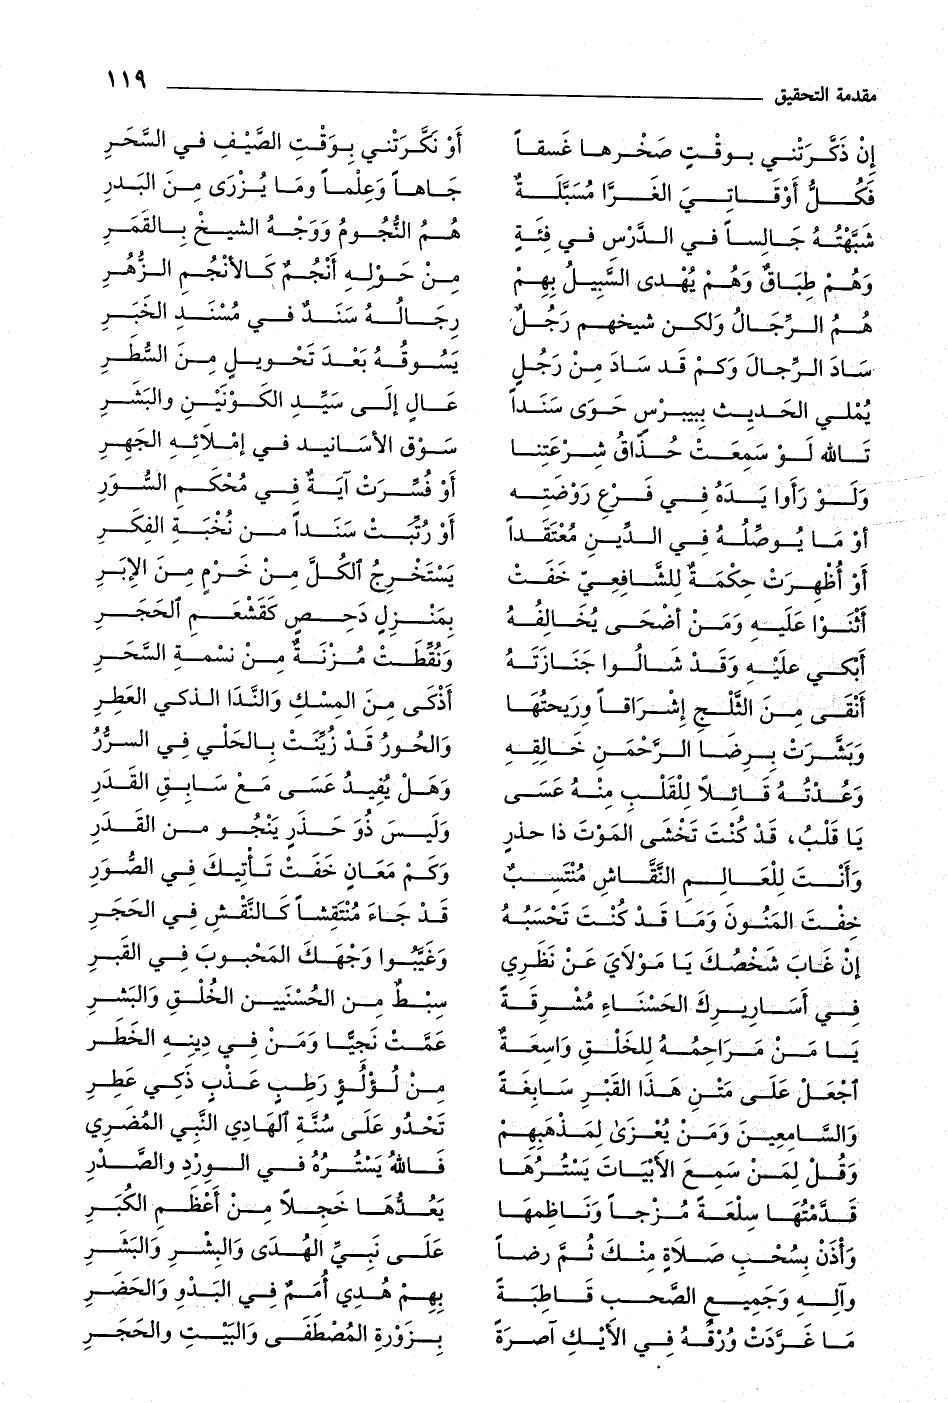 مقدمة التحقيق ١١٩
إِنْ ذَكَّرَتْنِي بِوَقْتِ صَخْرِهَا غَسَقاً أَوْ نَكَّرَتْنِي بِوَقْتِ الصَّيْفِ فِي السَّحَرِ
فَكُلُّ أَوْقَاتِيَ الغَرَّا مُسَبَّلَةٌ جَاهاً وَعِلْماً ومَا يُزْرَى مِنَ البَدرِ
شَبَّهْتُهُ جَالِساً فِي الدَّرْسِ فِي فِئَةٍ هُمُ النُّجُومُ وَوَجْهُ الشيخِ بِالقَمَرِ
وَهُمْ طِبَاقٌ وَهُمْ يُهْدَى السَّبِيلُ بِهِمْ مِنْ حَوْلِهِ أَنْجُمٌ كَالأَنْجُمِ الزُّهُرِ
هُمُ الرِّجَالُ وَلكن شيخهم رَجُلٌ رِجَالُهُ سَنَدٌ فِي مُسْنَدِ الخَبَرِ
سَادَ الرِّجَالَ وَكَمْ قَد سَادَ مِنْ رَجُلٍ يَسُوقُهُ بَعْدَ تَحْوِيلٍ مِنَ السُّطُرِ
يُمْلِي الحَدِيثَ بِبِيبَرْسٍ حَوَى سَنَداً عَالٍ إِلَى سَيِّدِ الكَوْنَيْنِ والبَشَرِ
تَاللهِ لَوْ سَمِعَتْ حُذَّاقُ شِرْعَتِنَا سَوْقَ الأَسَانِيدِ فِي إِمْلَائِهِ الجَهِرِ
وَلَوْ رَأَوا يَدَهُ فِي فَرْعِ رَوْضَتِهِ أَوْ فُسِّرَتْ آيَةٌ فِي مُحْكَمِ السُّوَرِ
أوْ مَا يُوصِّلُهُ فِي الدِّينِ مُعْتَقَداً أَوْ رُتِّبَتْ سَنَداً مِن نُخْبَةِ الفِكَرِ
أَوْ أُظْهِرَتْ حِكْمَةٌ للشَّافِعِيِّ خَفَتْ يَسْتَخْرِجُ ٱلكُلَّ مِنْ خَرْمٍ مِنَ الإِبَرِ
أَثْنَوْا عَلَيهِ وَمَنْ أَضْحَى يُخَالِفُهُ بِمَنْزِلٍ دَحِصٍ كَقَشْعَمِ ٱلحَجَرِ
أَبْكِي عَلَيْهِ وَقَدْ شَالُوا جَنَازَتَهُ وَنُقِّطَتْ مُزْنَةٌ مِنْ نسْمَةِ السَّحَرِ
أَنْقَى مِنَ الثَّلْجِ إِشْرَاقاً وَرِيحتُهَا أَذْكَى مِنَ المِسْكِ وَالنَّدَا الذكي العَطِرِ
وَبَشَّرَتْ بِرِضَا الرَّحْمَنِ خَالِقِهِ وَالحُورُ قَدْ زُيِّنَتْ بِالحَلْي فِي السرُّرُ
وَعُدْتُهُ قَائِلاً لِلْقَلْبِ مِنْهُ عَسَى وَهَلْ يُفِيدُ عَسَى مَعْ سَابِقِ القَدَرِ
يَا قَلْبُ، قَدْ كُنْتَ تَخْشَى المَوْتَ ذا حذرٍ وَلَيسَ ذُو حَذَرٍ يَنْجُو مِن القَدَرِ
وَأَنْتَ لِلْعَالِمِ النَّقَّاشِ مُنْتَسِبٌ وَكَمْ مَعَانٍ خَفَتْ تَأْتِيكَ فِي الصُّوَرِ
خِفْتَ المَنُونَ وَمَا قَدْ كُنْتَ تَحْسَبُهُ قَدْ جَاءَ مُنْتَقِشاً كَالنَّقْشِ فِي الحَجَرِ
إنْ غَابَ شَخْصُكَ يَا مَوْلَايَ عَنْ نَظَرِي وَغَيَّبُوا وَجْهَكَ المَحْبُوبَ فِي القَبرِ
فِي أَسَارِيرِكَ الحَسْنَاءِ مُشْرِقَةً سِبْطٌ مِن الحُسْنَيينِ الخُلْقِ وَالبَشَرِ
يَا مَنْ مَرَاحِمُهُ لِلخَلْقِ وَاسِعَةٌ عَمَّتْ نَجيًّا وَمَنْ فِي دِينِهِ الخَطَرِ
ٱجْعَلْ عَلَى مَتْنِ هَذَا القَبْرِ سَابِغَةً مِنْ لُؤلُؤٍ رَطِبٍ عَذْبٍ ذَكِي عَطِرِ
وَالسَّامِعِينَ وَمَنْ يُعْزَىٰ لِمَذْهَبِهِمْ تَحْذُو عَلَى سُنَّةِ ٱلهَادِي النَّبِي المُضَرِي
وَقُلْ لِمَنْ سَمِعَ الأَبْيَاتَ يَسْتُرُهَا فَاللهُ يَسْتُرُهُ فِي الوِرْدِ والصَّدْرِ
قَدَّمْتُهَا سِلْعَةً مُزْجاً وَنَاظِمُهَا يَعُدُّهَا خَجِلاً مِنْ أَعْظَمِ الكُبَرِ
وَأْذَنْ بِسُحْبِ صَلَاةٍ مِنْكَ ثُمَّ رِضاً عَلَى نَبِيِّ الهُدَى وَالبِشْرِ وَالبَشَرِ
وآلِهِ وَجَمِيعِ الصَّحبِ قَاطِبَةً بِهِمْ هُدِي أُمَمٌ فِي البَدْوِ وَالحَضَرِ
مَا غَرَّدَتْ وُرْقُهُ فِي الأَيْكِ آصِرَةً بِزَوْرَةِ المُصْطَفَى وَالبَيْتِ والحَجَرِ